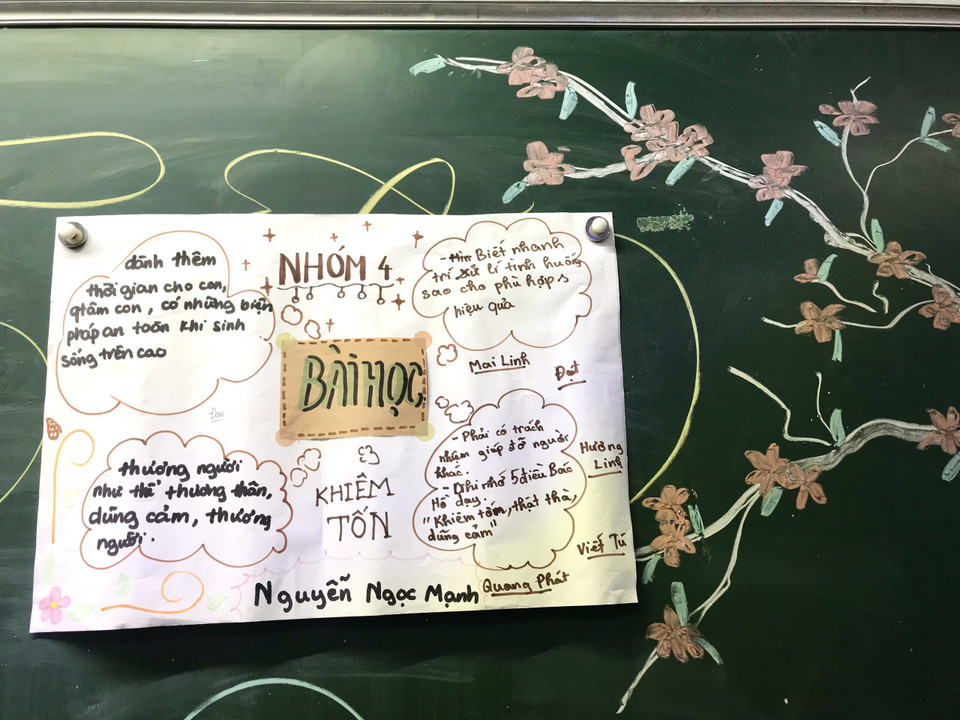 NHÓM 4
dành thêm
thời gian cho con,
qtâm con, có những biện
pháp an toàn khi sinh
sống trên cao
Đan
- Biết nhanh
trí xử lí tình huống
sao cho phù hợp
hiệu quả
Mai Linh
Đạt
BÀI HỌC
KHIÊM
TỐN
thương người
như thể thương thân,
dũng cảm, thương
người.
- Phải có trách
nhiệm giúp đỡ người
khác.
- Ghi nhớ 5 điều Bác
Hồ dạy.
"Khiêm tốn, thật thà,
dũng cảm"
Hương
Linh
Viết Tú
Quang Phát
Nguyễn Ngọc Mạnh